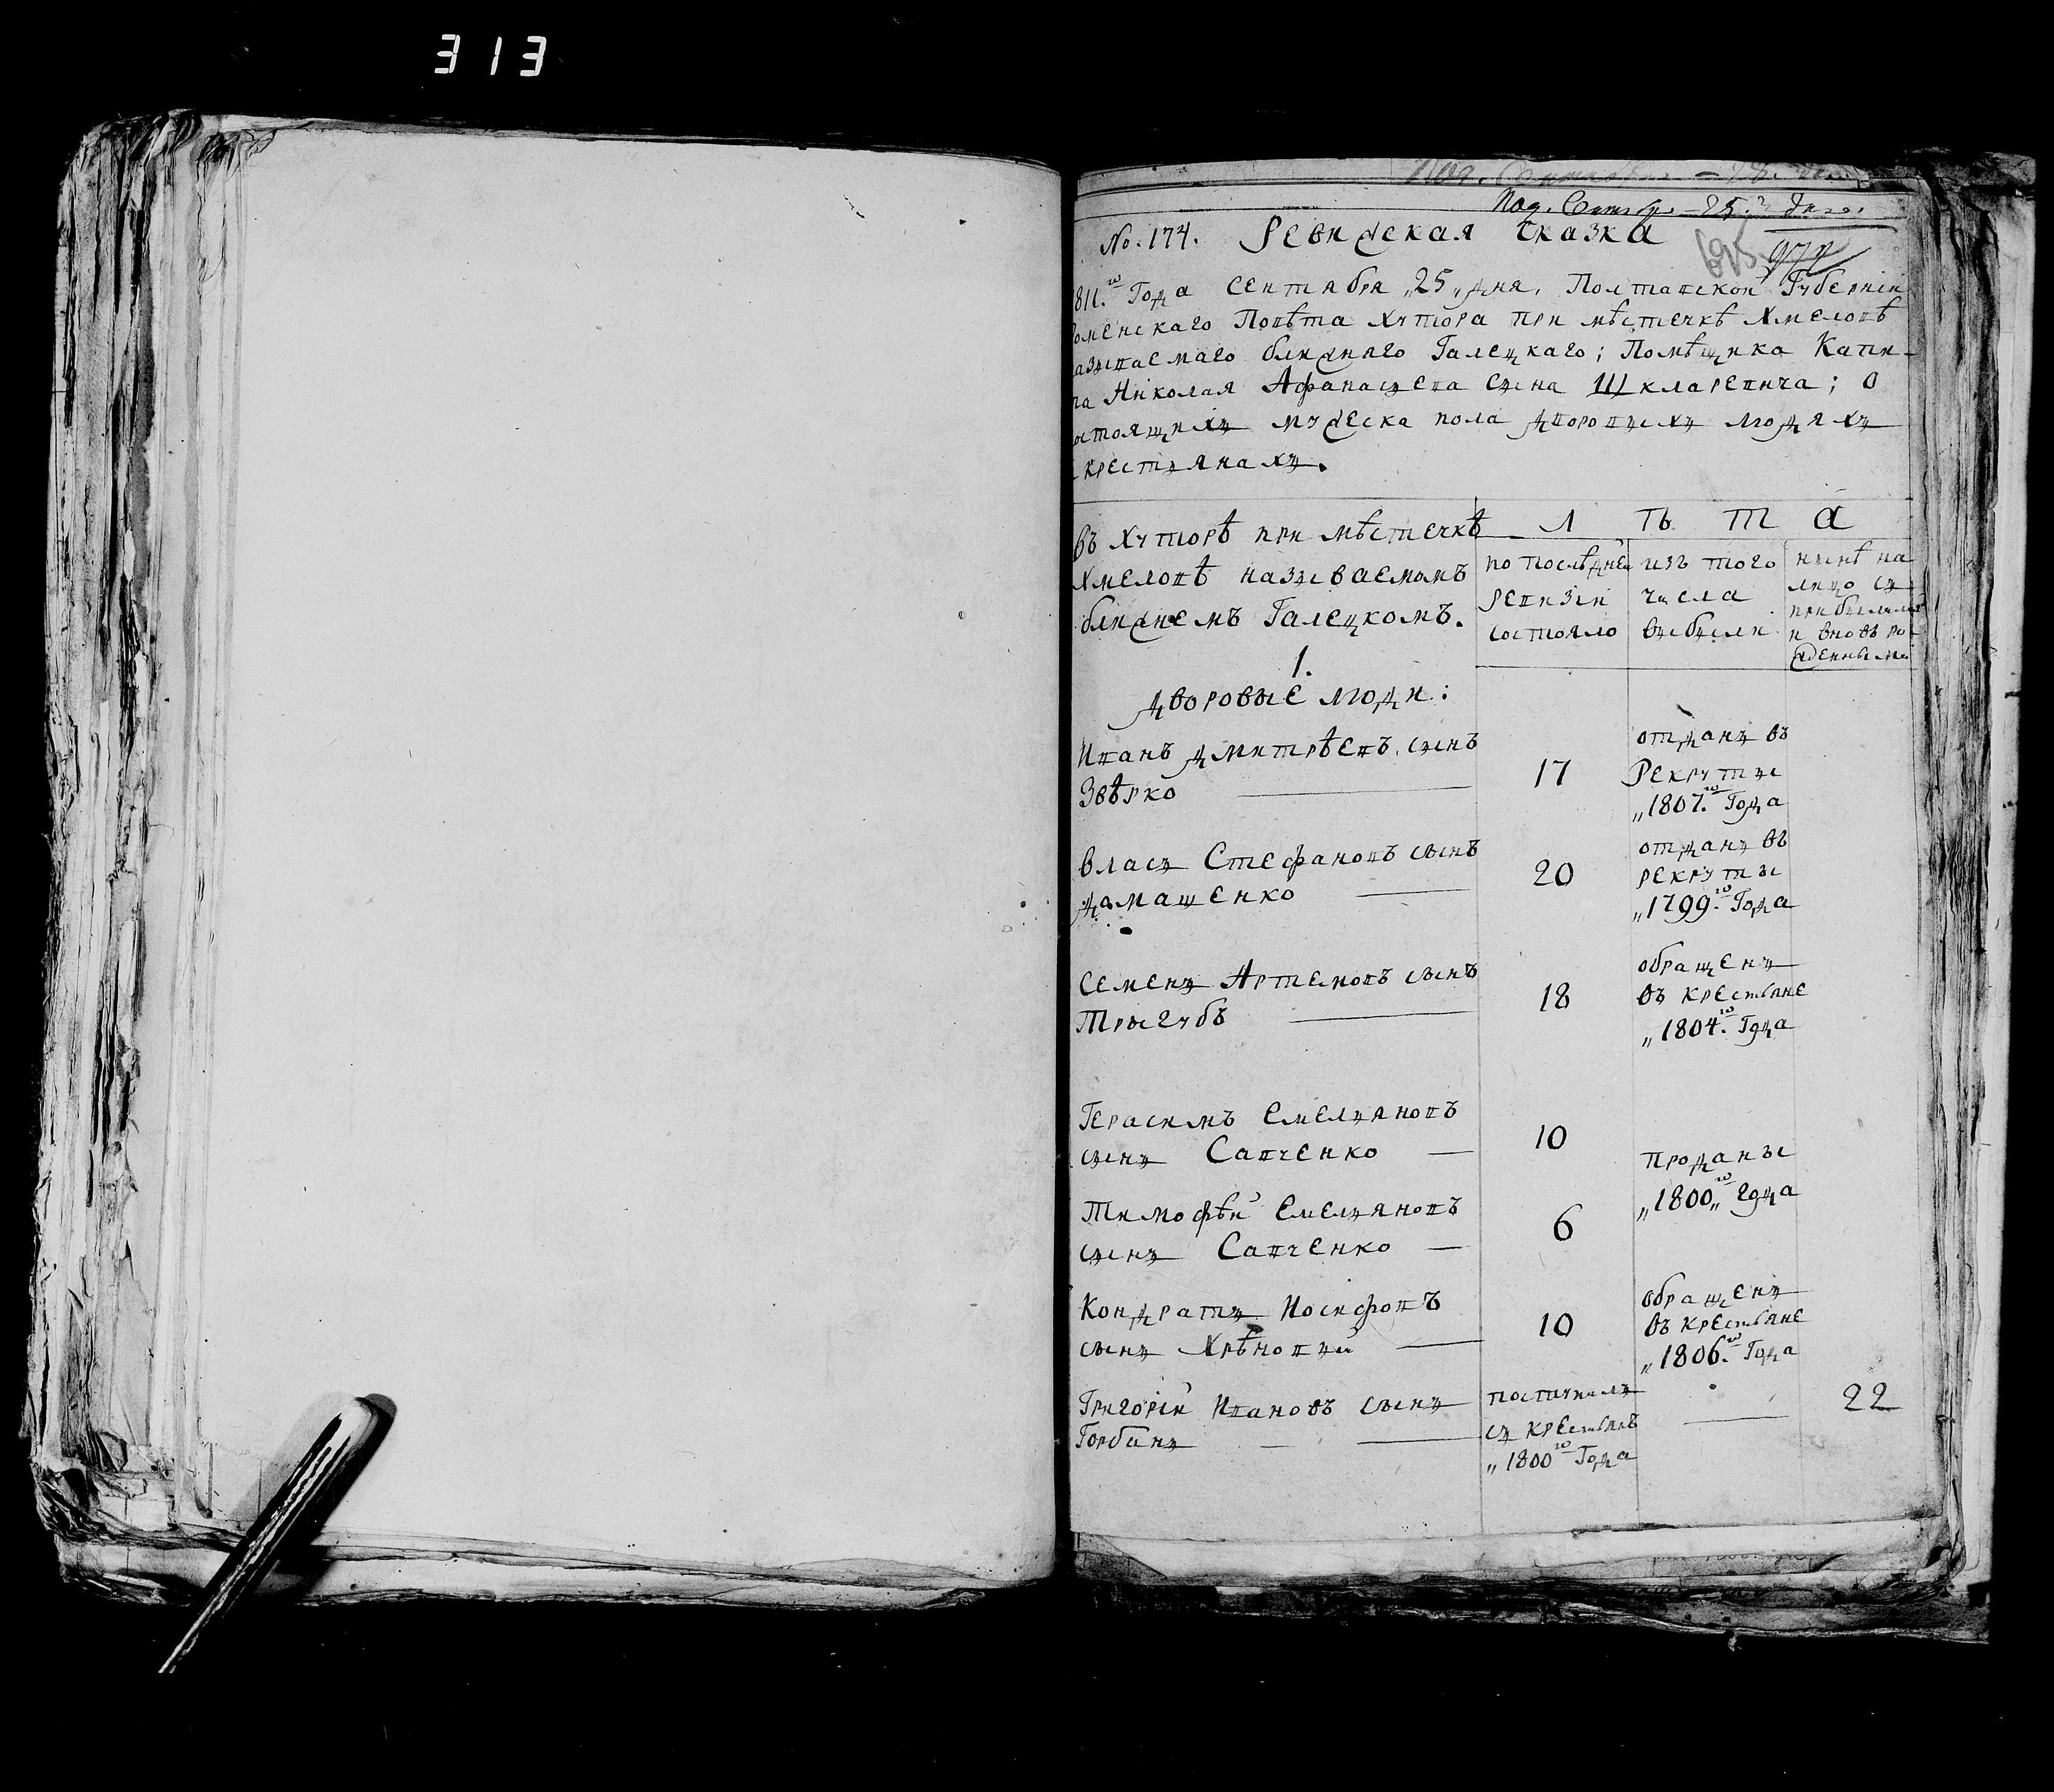 313
Под. Сентября 25.го Дня.
No. 174. Ревижская сказка
695
811.го Года Сентября „25„ дня, Полтавской Губерніи
оменскаго Повѣта хутора при мѣстечкѣ Хмеловѣ
азываемаго ближняго Галецкаго; Помѣщика Капи-
на Николая Афанасьева сына Шкларевича; о
остоящихъ мужеска пола дворовыхъ людяхъ
крестьянахъ.
Въ хуторѣ при мѣстечкѣ
Хмеловѣ называемомъ
ближнемъ Галецкомъ.
Л ѣ т а
по послѣдней
ревизіи
состояло
изъ того
числа
выбыли
нынѣ на
лицо съ
прибылыми
и вновь ро-
жденными
1.
Дворовые люди:
Иванъ Дмитрѣевъ сынъ
Звѣрко
17
отданъ въ
Рекруты
„1807.го Года
Власъ Стефановъ сынъ
Дамашенко
20
отданъ въ
рекруты
„1799.го Года
Семенъ Артемовъ сынъ
Трыгубъ
18
обращенъ
въ крестьяне
„1804.го Года
Герасимъ Емельяновъ
сынъ Савченко
10
Проданы
„1800„го года
Тимофѣй Емельяновъ
сынъ Савченко
6
Кондратъ Иосифовъ
сынъ Хрѣновый
10
обращенъ
въ крестьяне
„1806.го Года
Григорій Ивановъ сынъ
Горбанъ
поступилъ
съ крестьянъ
„1800го Года
22